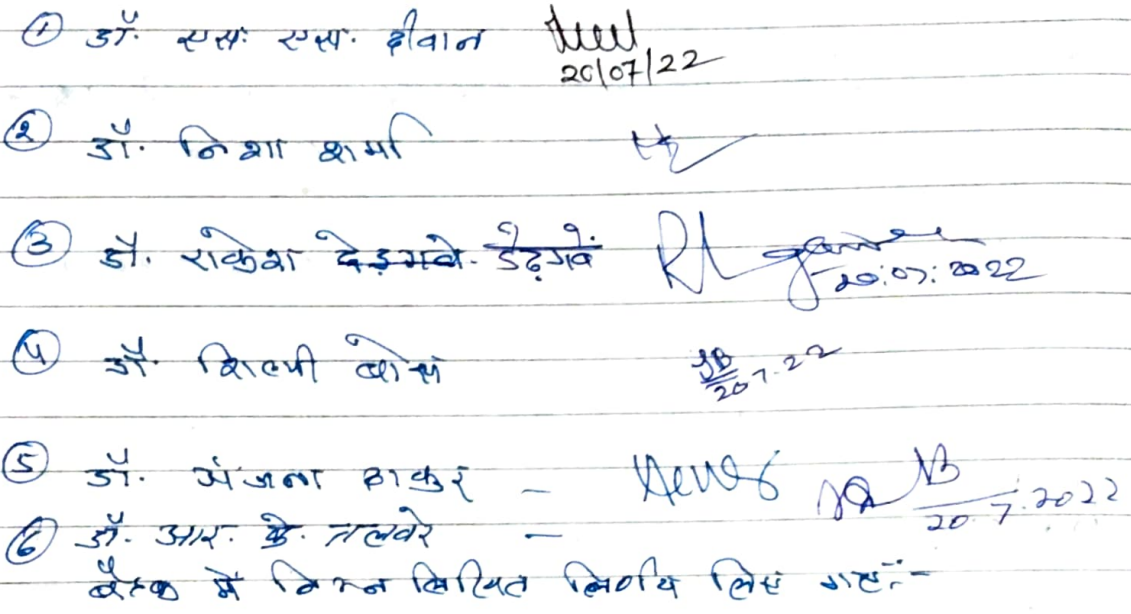 ① डॉ. एस. एस. दीवान
20/07/22
② डॉ. निशा शर्मा
③ डॉ. राकेश देडगवे. डेढ़गवे
20:07:2022
④ डॉ. शिल्पी बोस
SB
20.7.22
⑤ डॉ. मंजुला ठाकुर -
20.7.2022
⑥ डॉ. आर. के. तलवरे -
बैठक में निम्न लिखित निर्णय लिए गए:-